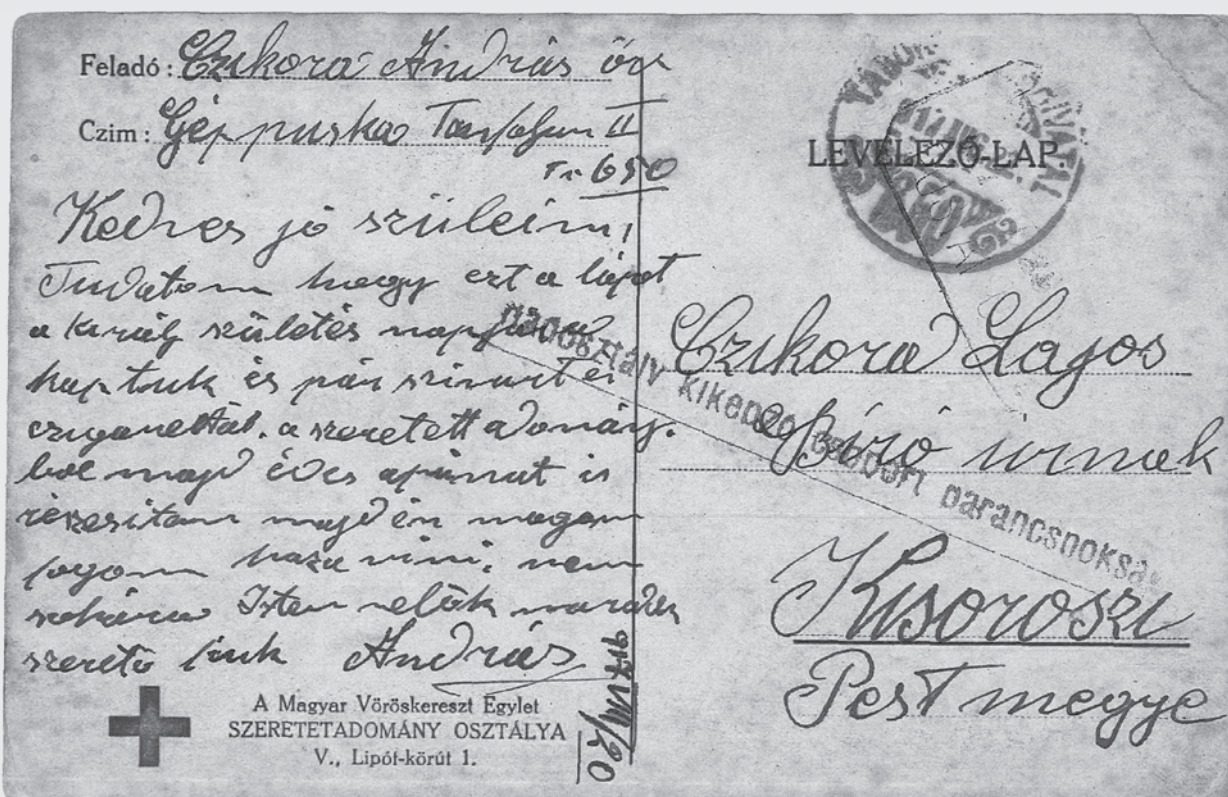 Feladó: Czukora András őrv
Czim: Géppuska Tanfolyam II
T. 650
Kedves jó szüleim!
Tudatom hogy ezt a lapot
a király születés napjára
kaptuk és pár szivart és
czigarettát. a szeretett adomány.
bol majd édes apámat is
részesitem majd én magam
fogom haza vinni, nem
sokára Isten velök maradok
szerető fiuk András
917 VIII/20
A Magyar Vöröskereszt Egylet
SZERETETADOMÁNY OSZTÁLYA
V., Lipót-körút 1.
LEVELEZŐ-LAP.
Czukora Lajos
Biró úrnak
Kisoroszi
Pest megye
kiképző csoport parancsnoksá